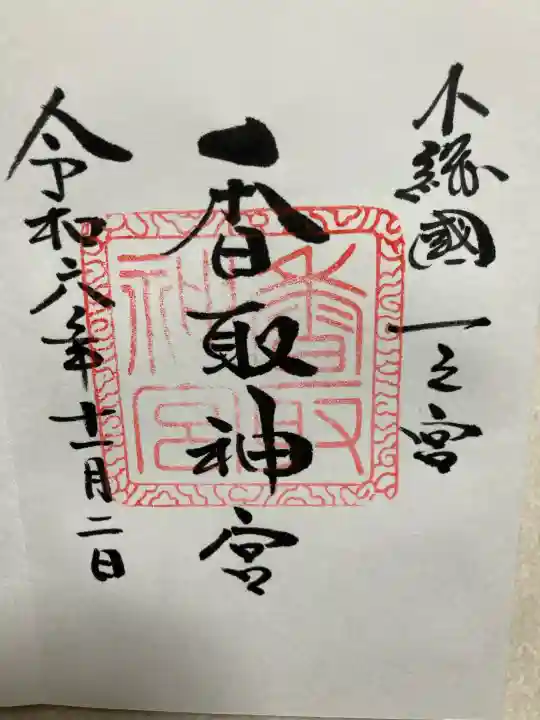 下総國 一之宮
香取神宮
令和六年十一月二日
香取神宮